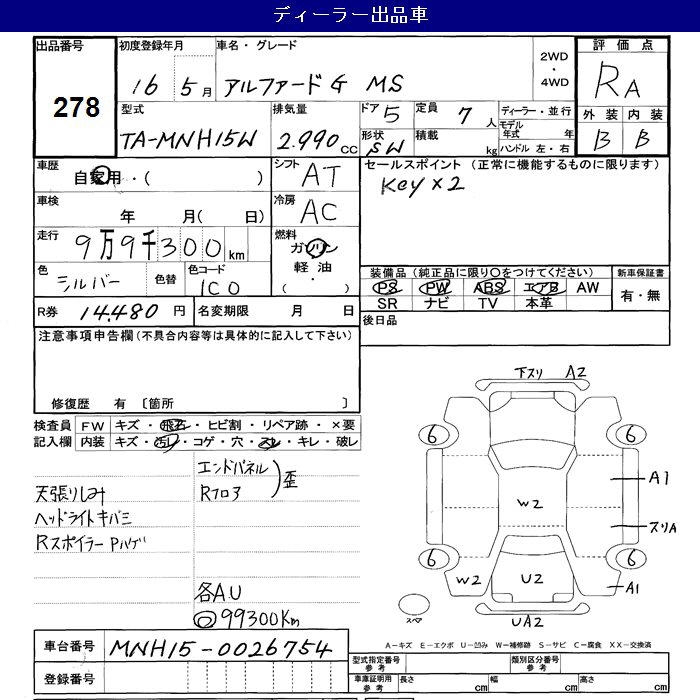 ディーラー出品車
出品番号 278
初度登録年月 16 5月
車名・グレード アルファードG MS
2WD・4WD
評価点 RA
外装 内装
B B
型式 TA-MNH15W
排気量 2.990cc
ドア 5
形状 SW
定員 7人
積載 kg
ディーラー・並行
モデル年式 年
ハンドル 左・右
車歴 自家用・( )
シフト AT
セールスポイント (正常に機能するものに限ります)
Key×2
車検 年 月( 日)
冷房 AC
走行 9万9千300km
燃料 ガソリン
軽油
・
( )
色 シルバー
色替
色コード 1C0
装備品 (純正品に限り〇をつけてください)
PS PW ABS エアB AW
SR ナビ TV 本革
新車保証書
有・無
R券 14.480円
名変期限 月 日
後日品
注意事項申告欄(不具合内容等は具体的に記入して下さい)
修復歴 有 〔箇所 〕
検査員記入欄
FW キズ・飛石・ヒビ割・リペア跡・×要
内装 キズ・汚レ・コゲ・穴・スレ・キレ・破レ
エンドパネル
Rフロア
歪
天張りしみ
ヘッドライトキバミ
Rスポイラー Pハゲ
各AU
◎99300Km
下スリ A2
6 6
A1
W2
スリA
6 6
W2 U2 A1
スペア
UA2
車台番号 MNH15-0026754
登録番号
A-キズ E-エクボ U-凹み W-補修跡 S-サビ C-腐食 XX-交換済
型式指定番号 参考
類別区分番号 参考
車庫証明用 参考
長さ cm 幅 cm 高さ cm